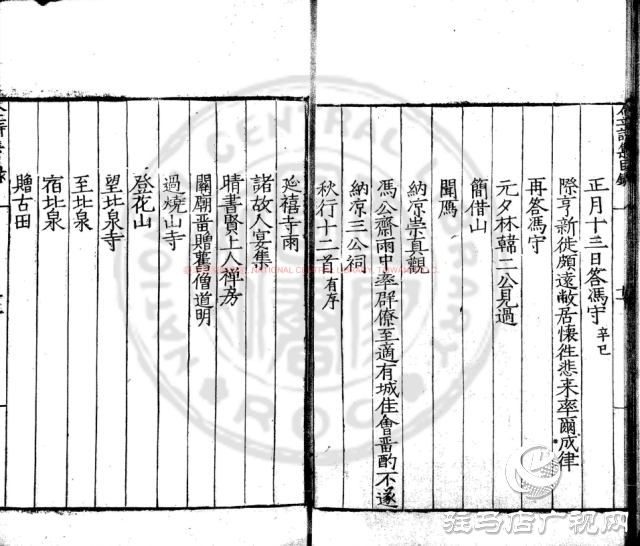 正月十三日答馮守 辛巳
際亨新徙頗遠敝居懷徃悲来率爾成律
再答馮守
元夕林韓二公見過
簡借山
聞鴈
納凉崇真觀
馮公齋雨中率群僚至適有城
不遂
納凉三公祠
秋行十二首 有序
延禧寺雨
諸故人宴集
晴書賢上人禅房
關廟畱贈舊僧道明
過燒山寺
登花山
望北泉寺
至北泉
宿北泉
贈古田
NATIONAL CENTRAL LIBRARY, TAIWAN, R.O.C.
驻马店广视网